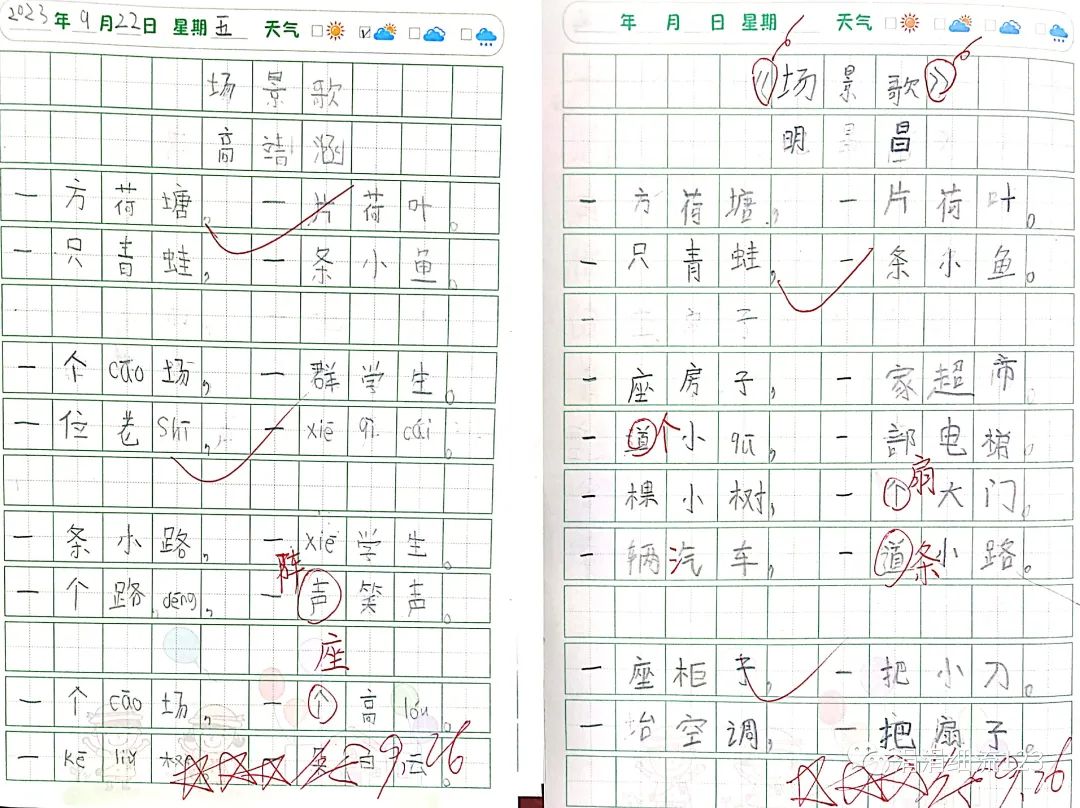 2023年9月22日 星期五 天气
场景歌
高靖涵
一方荷塘，一片荷叶。
一只青蛙，一条小鱼。
一个cāo场，一群学生。
一位老shī，一xiē qì cái
一条小路，一xiē学生。
阵
一个路dēng，一声笑声。
座
一个cāo场，一个高lóu。
一kē liǔ
9.26
年 月 日 星期 天气
《场景歌》
明昌
一方荷塘，一片荷叶。
一只青蛙，一条小鱼。
一座房子，一家超市
一道个小qū，一部电梯。
扇
一棵小树，一个大门
一辆汽车，一道条小路。
一座柜子，一把小刀。
一台空调，一把扇子
涓涓细流123
9.26